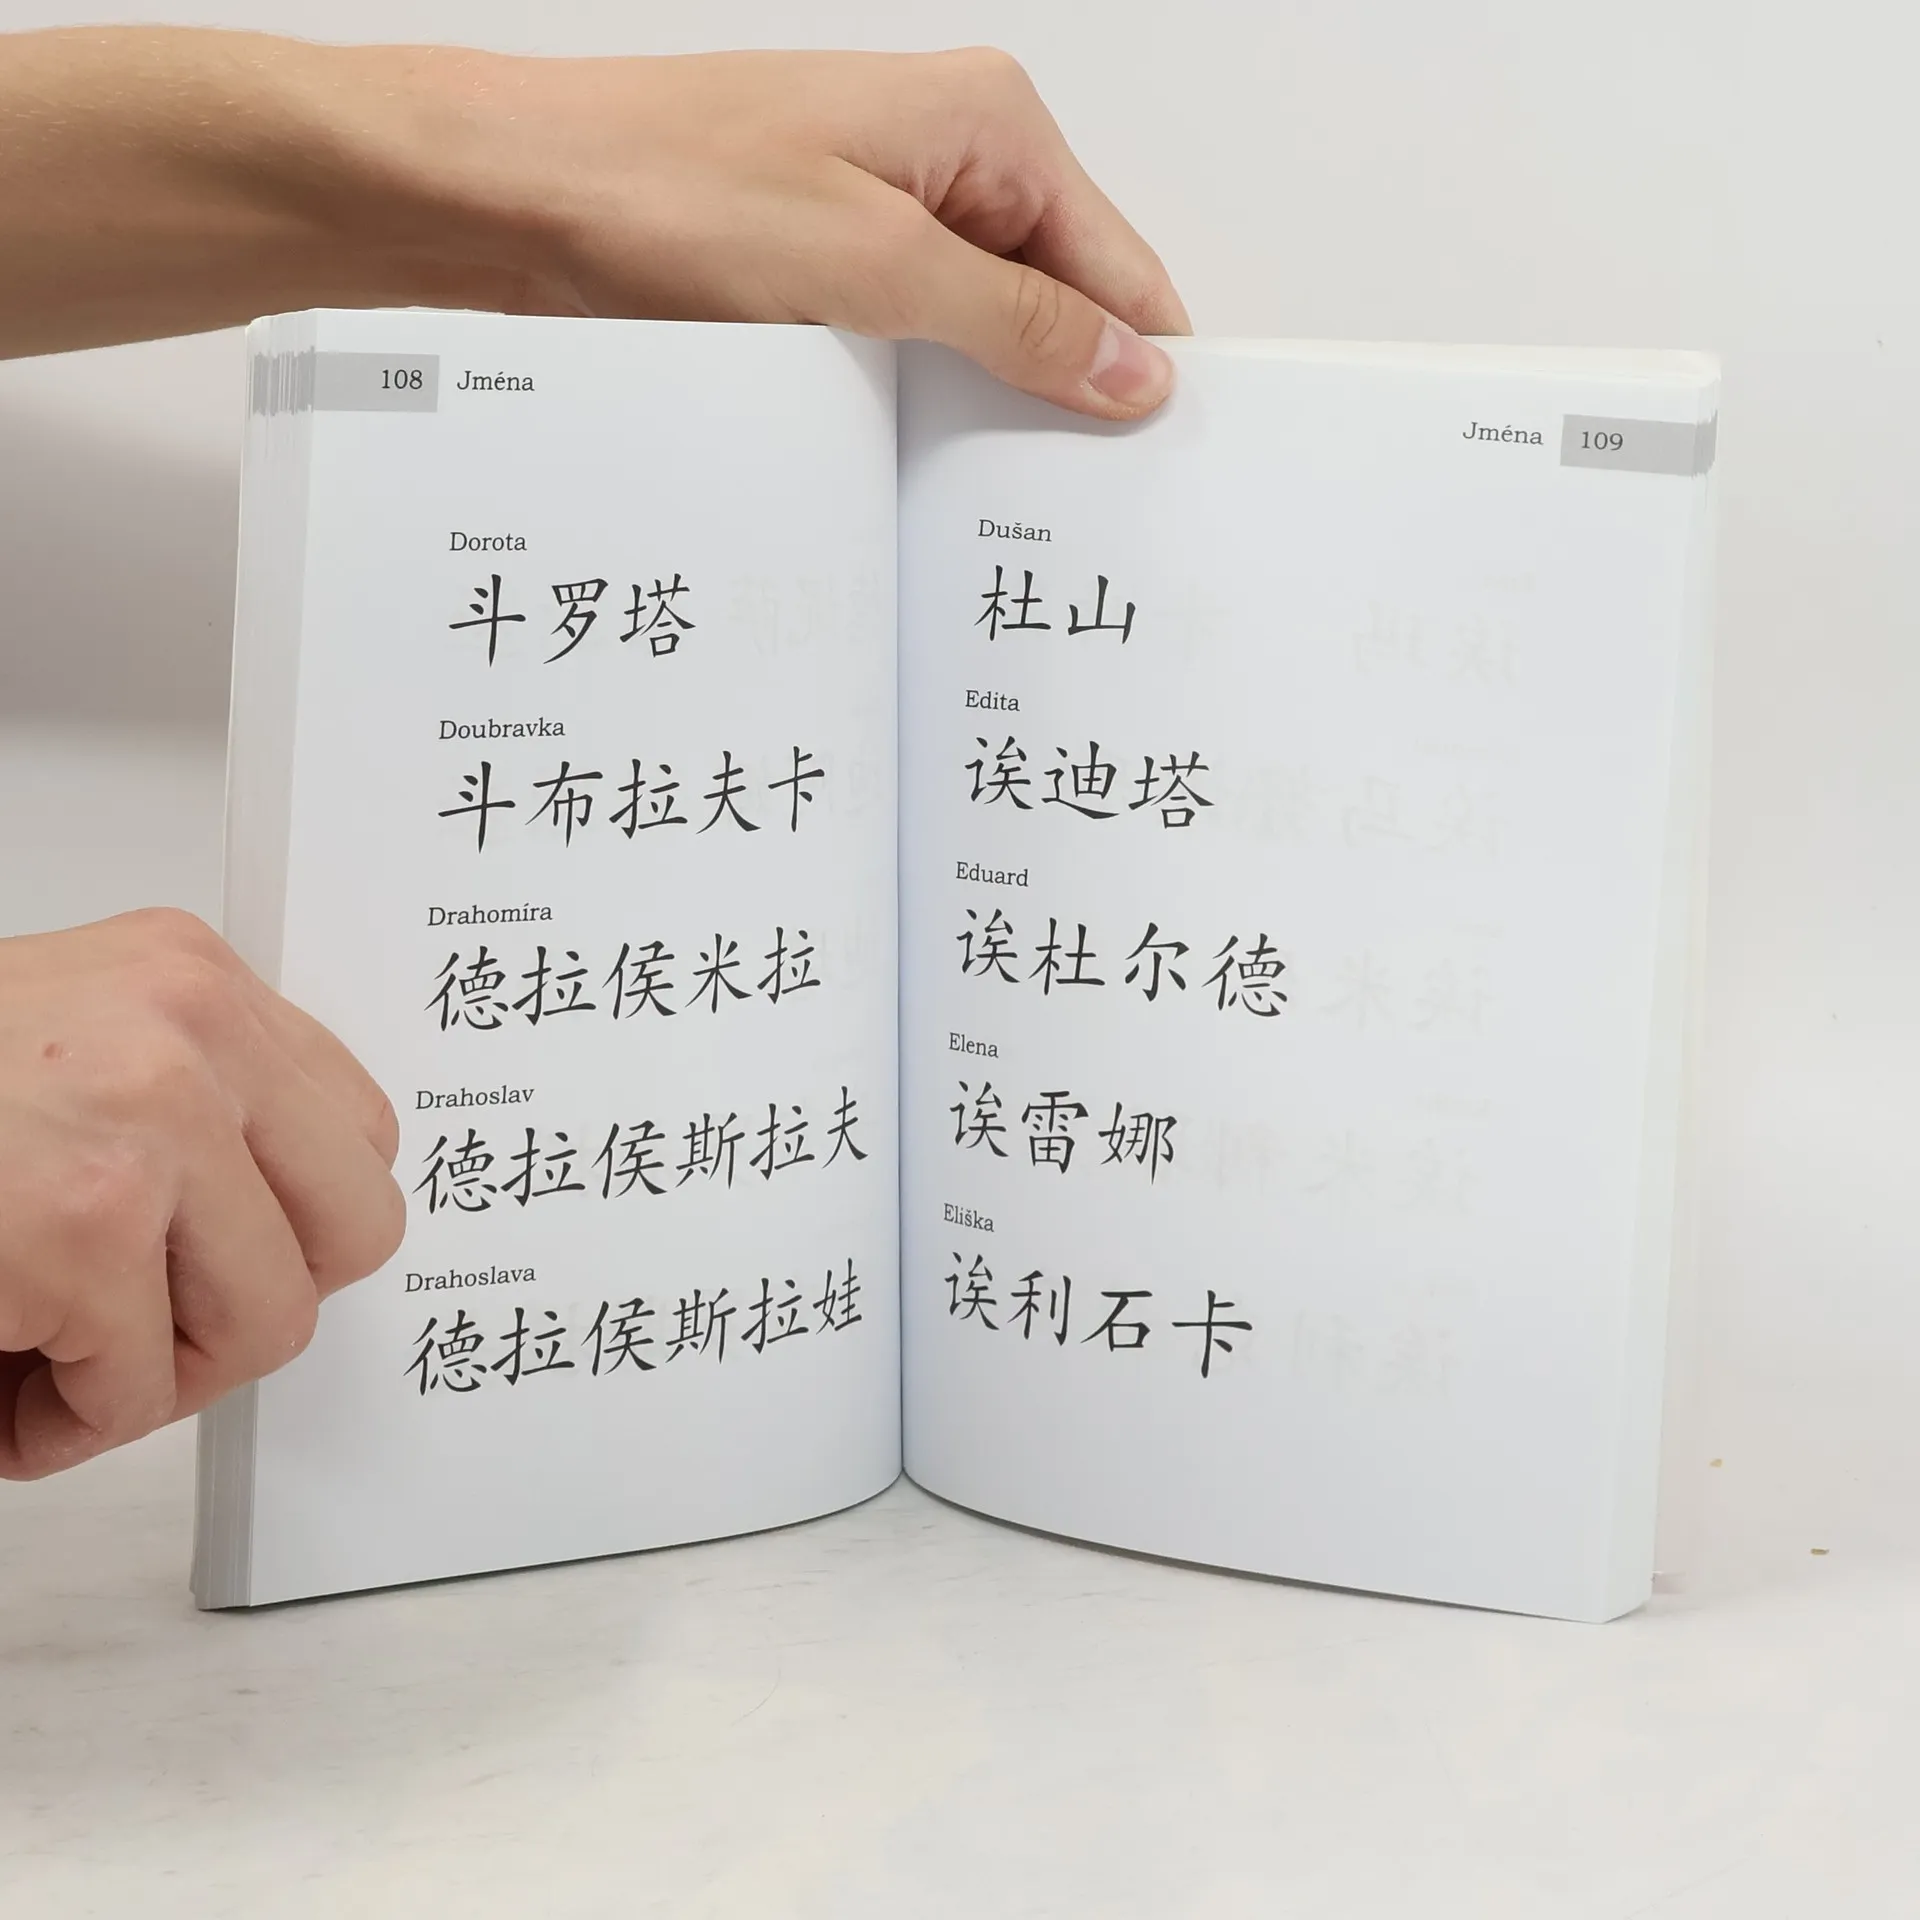 108 Jména
Dorota
斗罗塔
Doubravka
斗布拉夫卡
Drahomíra
德拉侯米拉
Drahoslav
德拉侯斯拉夫
Drahoslava
德拉侯斯拉娃
Jména 109
Dušan
杜山
Edita
诶迪塔
Eduard
诶杜尔德
Elena
诶雷娜
Eliška
诶利石卡